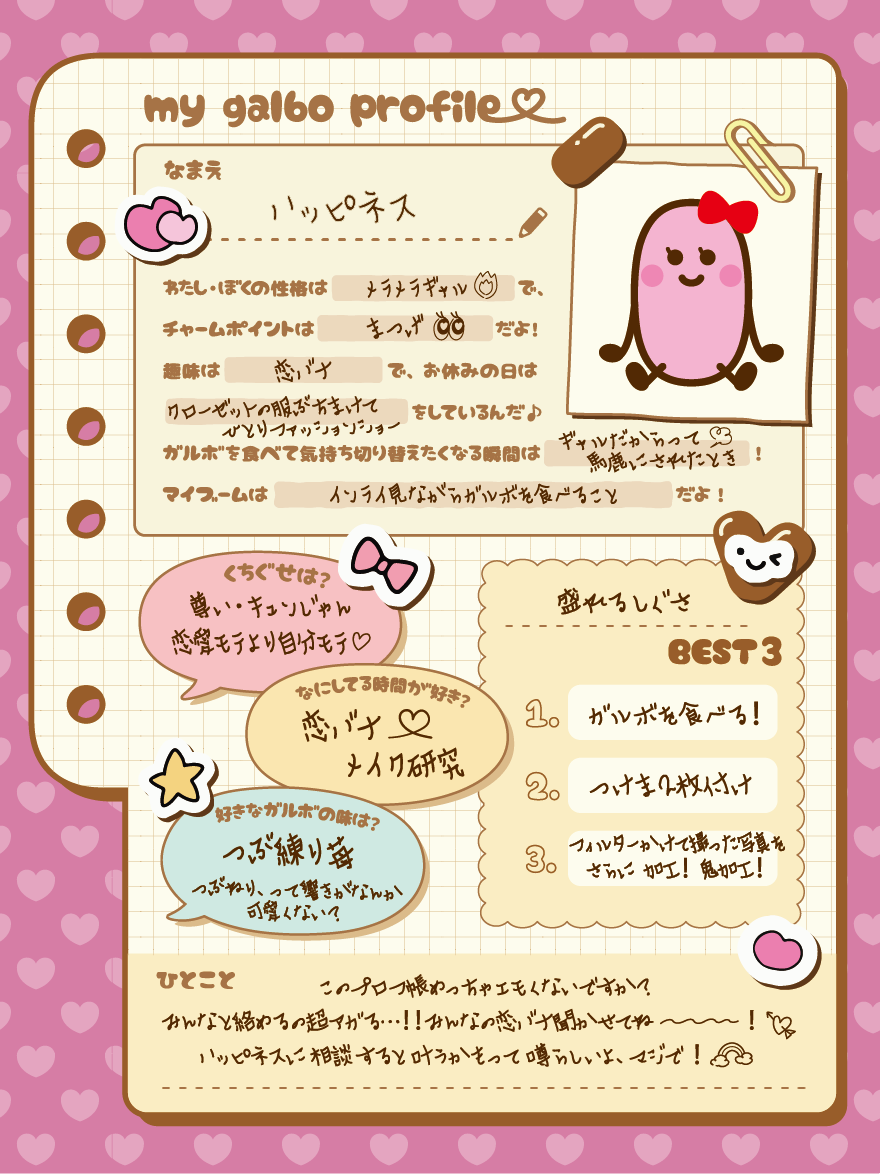 my galbo profile
なまえ
ハッピネス
わたし・ぼくの性格は メラメラギャル で、
チャームポイントは まつげ だよ!
趣味は 恋バナ で、お休みの日は
クローゼットの服ぶちまけて
ひとりファッションショー をしているんだ♪
ガルボを食べて気持ち切り替えたくなる瞬間は ギャルだからって
馬鹿にされたとき !
マイブームは インライ見ながらガルボを食べること だよ!
くちぐせは?
尊い・キュンじゃん
恋愛モテより自分モテ♡
なにしてる時間が好き?
恋バナ
メイク研究
好きなガルボの味は?
つぶ練り苺
つぶねり、って響きがなんか
可愛くない?
盛れるしぐさ
BEST 3
1. ガルボを食べる!
2. つけま2枚付け
3. フィルターかけて撮った写真を
さらに 加工! 鬼加工!
ひとこと
このプロフ帳めっちゃエモくないですか?
みんなと絡めるの超アガる…!!みんなの恋バナ聞かせてね〜〜〜!
ハッピネスに相談すると叶うかもって噂らしいよ、マジで!